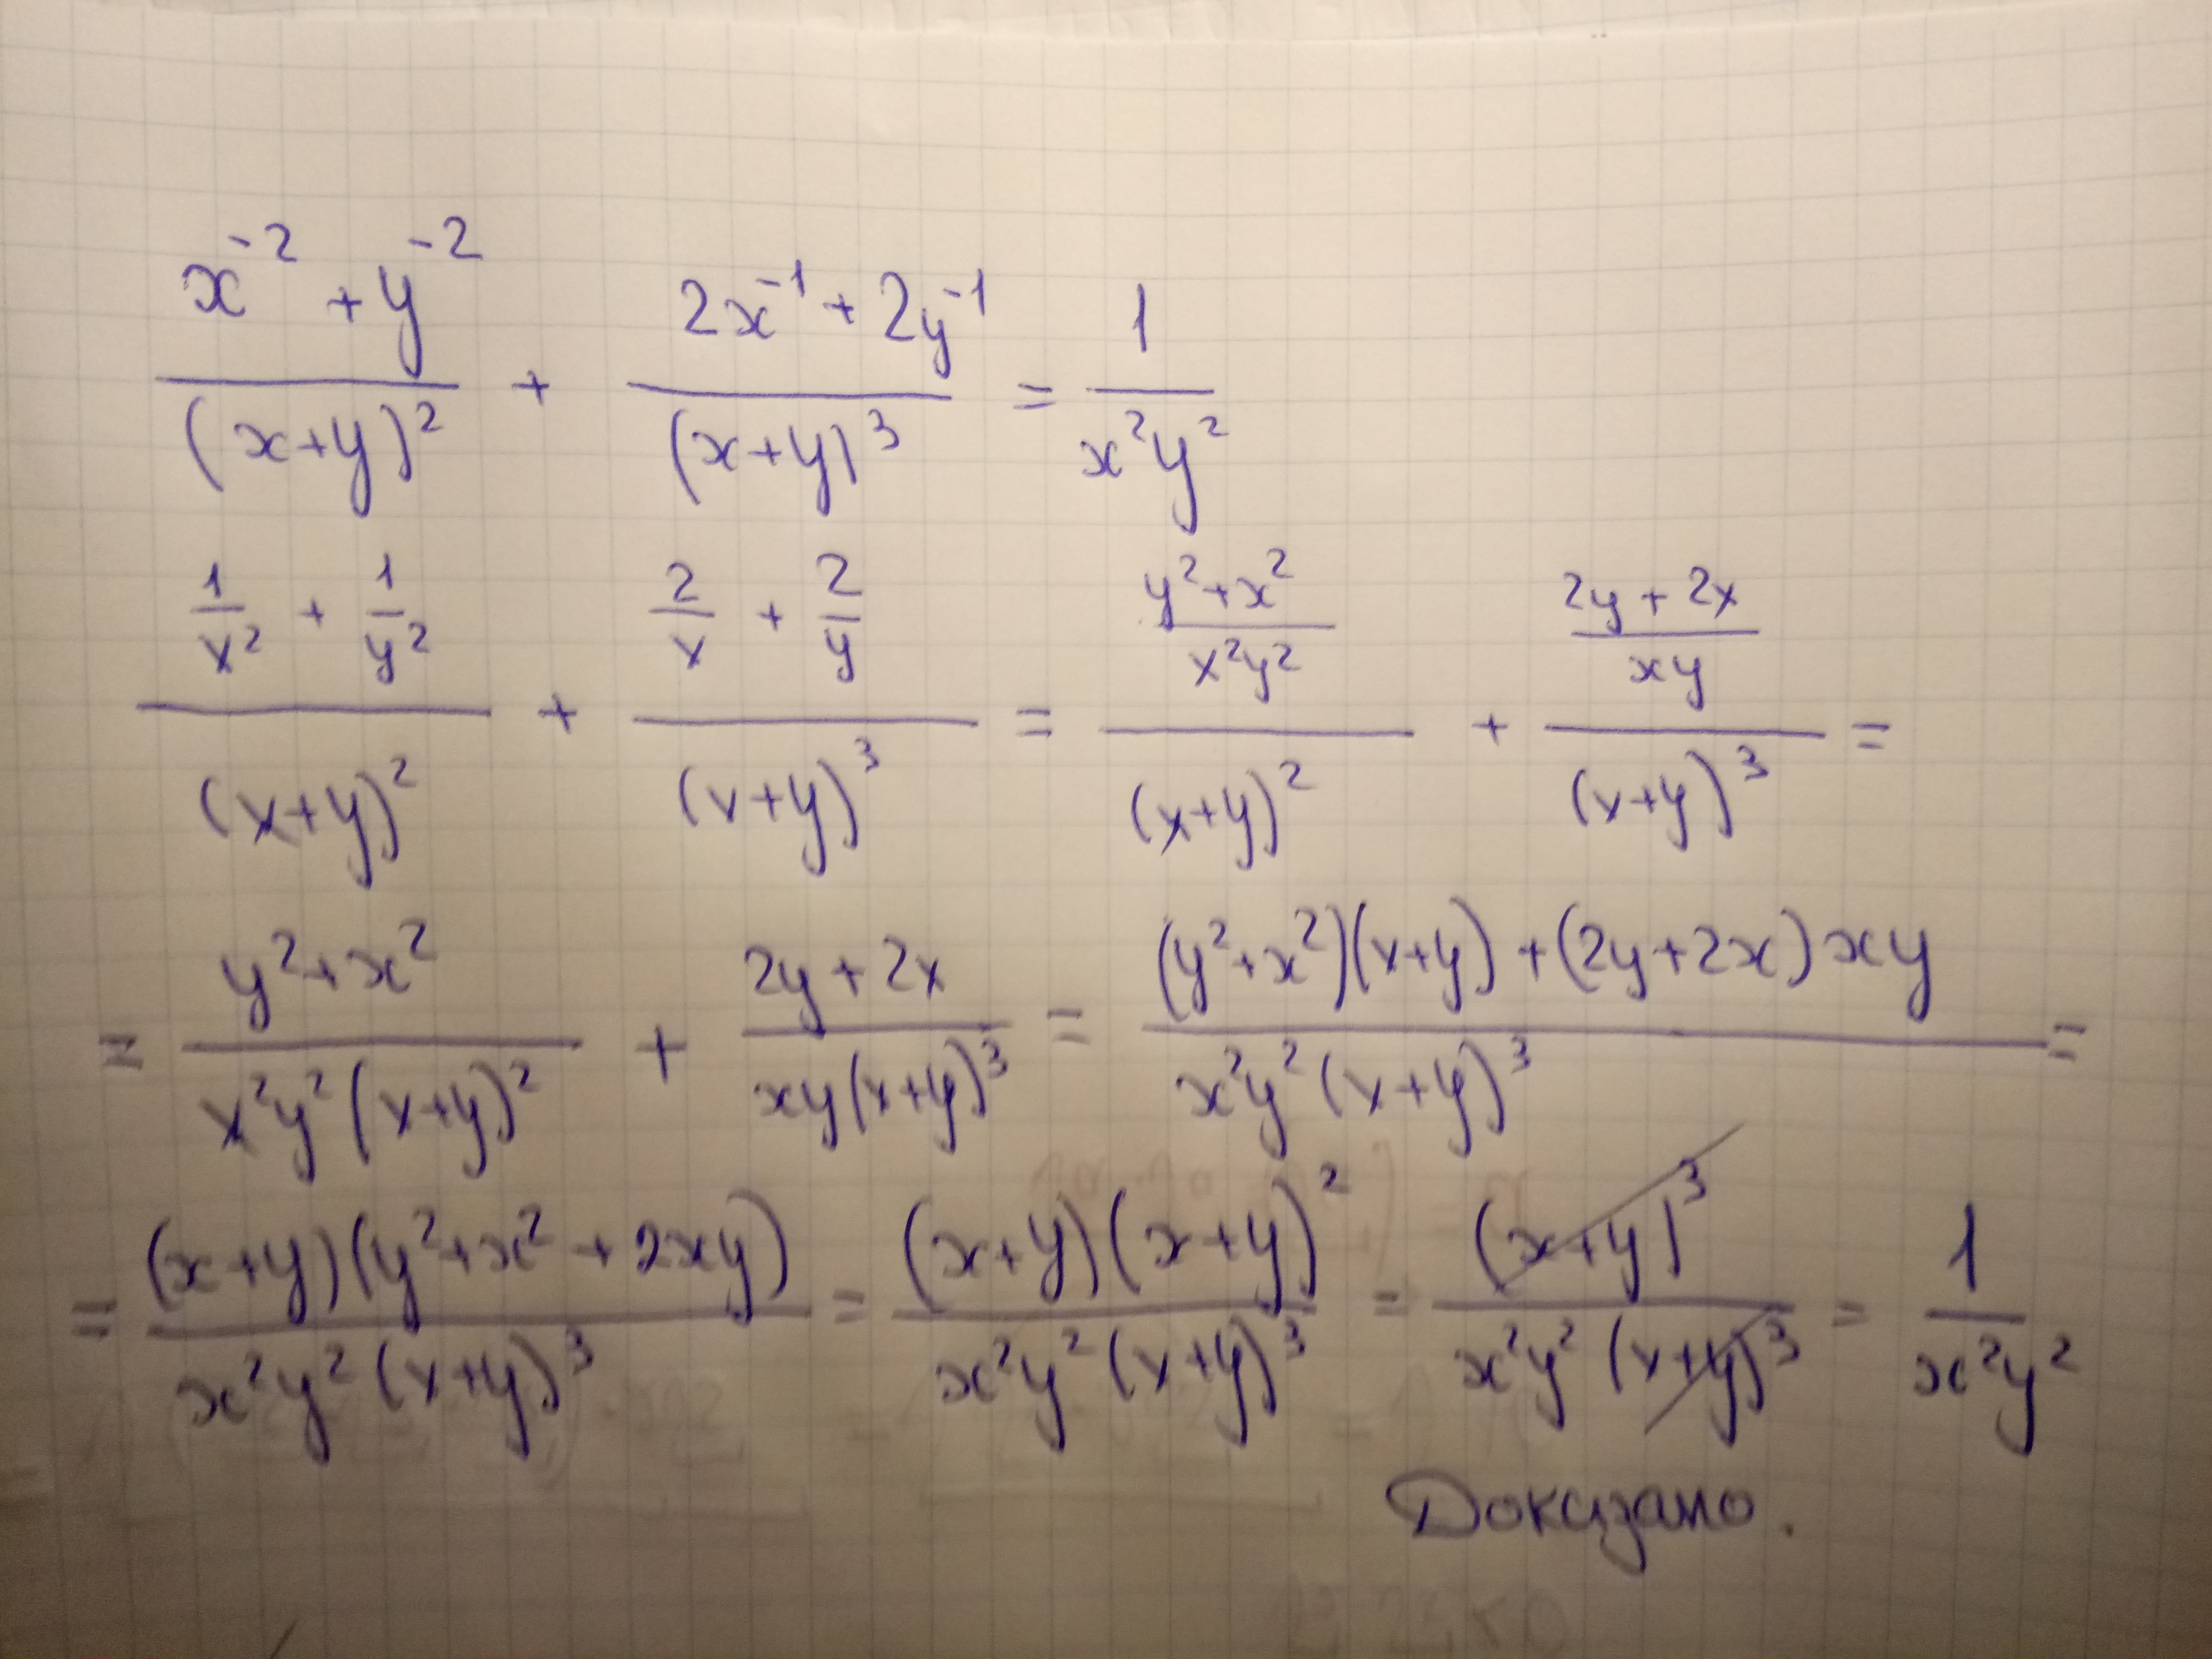 x⁻² + y⁻² / (x+y)² + 2x⁻¹ + 2y⁻¹ / (x+y)³ = 1 / x²y²
1/x² + 1/y² / (x+y)² + 2/x + 2/y / (x+y)³ = y²+x² / x²y² / (x+y)² + 2y + 2x / xy / (x+y)³ =
= y²+x² / x²y²(x+y)² + 2y + 2x / xy(x+y)³ = (y²+x²)(x+y) + (2y+2x)xy / x²y²(x+y)³ =
= (x+y)(y²+x²+2xy) / x²y²(x+y)³ = (x+y)(x+y)² / x²y²(x+y)³ = (x+y)³ / x²y²(x+y)³ = 1 / x²y²
Доказано.